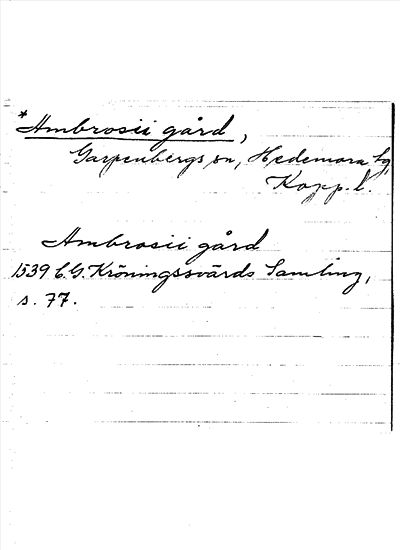 *Ambrosii gård,
Garpenbergs sn, Hedemora tg,
Kopp. l.
Ambrosii gård
1539 C.G. Kröningssvärds Samling,
s. 77.